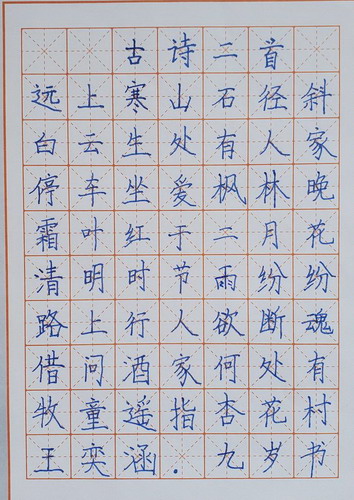 古诗二首
远上寒山石径斜
白云生处有人家
停车坐爱枫林晚
霜叶红于二月花
清明时节雨纷纷
路上行人欲断魂
借问酒家何处有
牧童遥指杏花村
王奕涵.九岁书